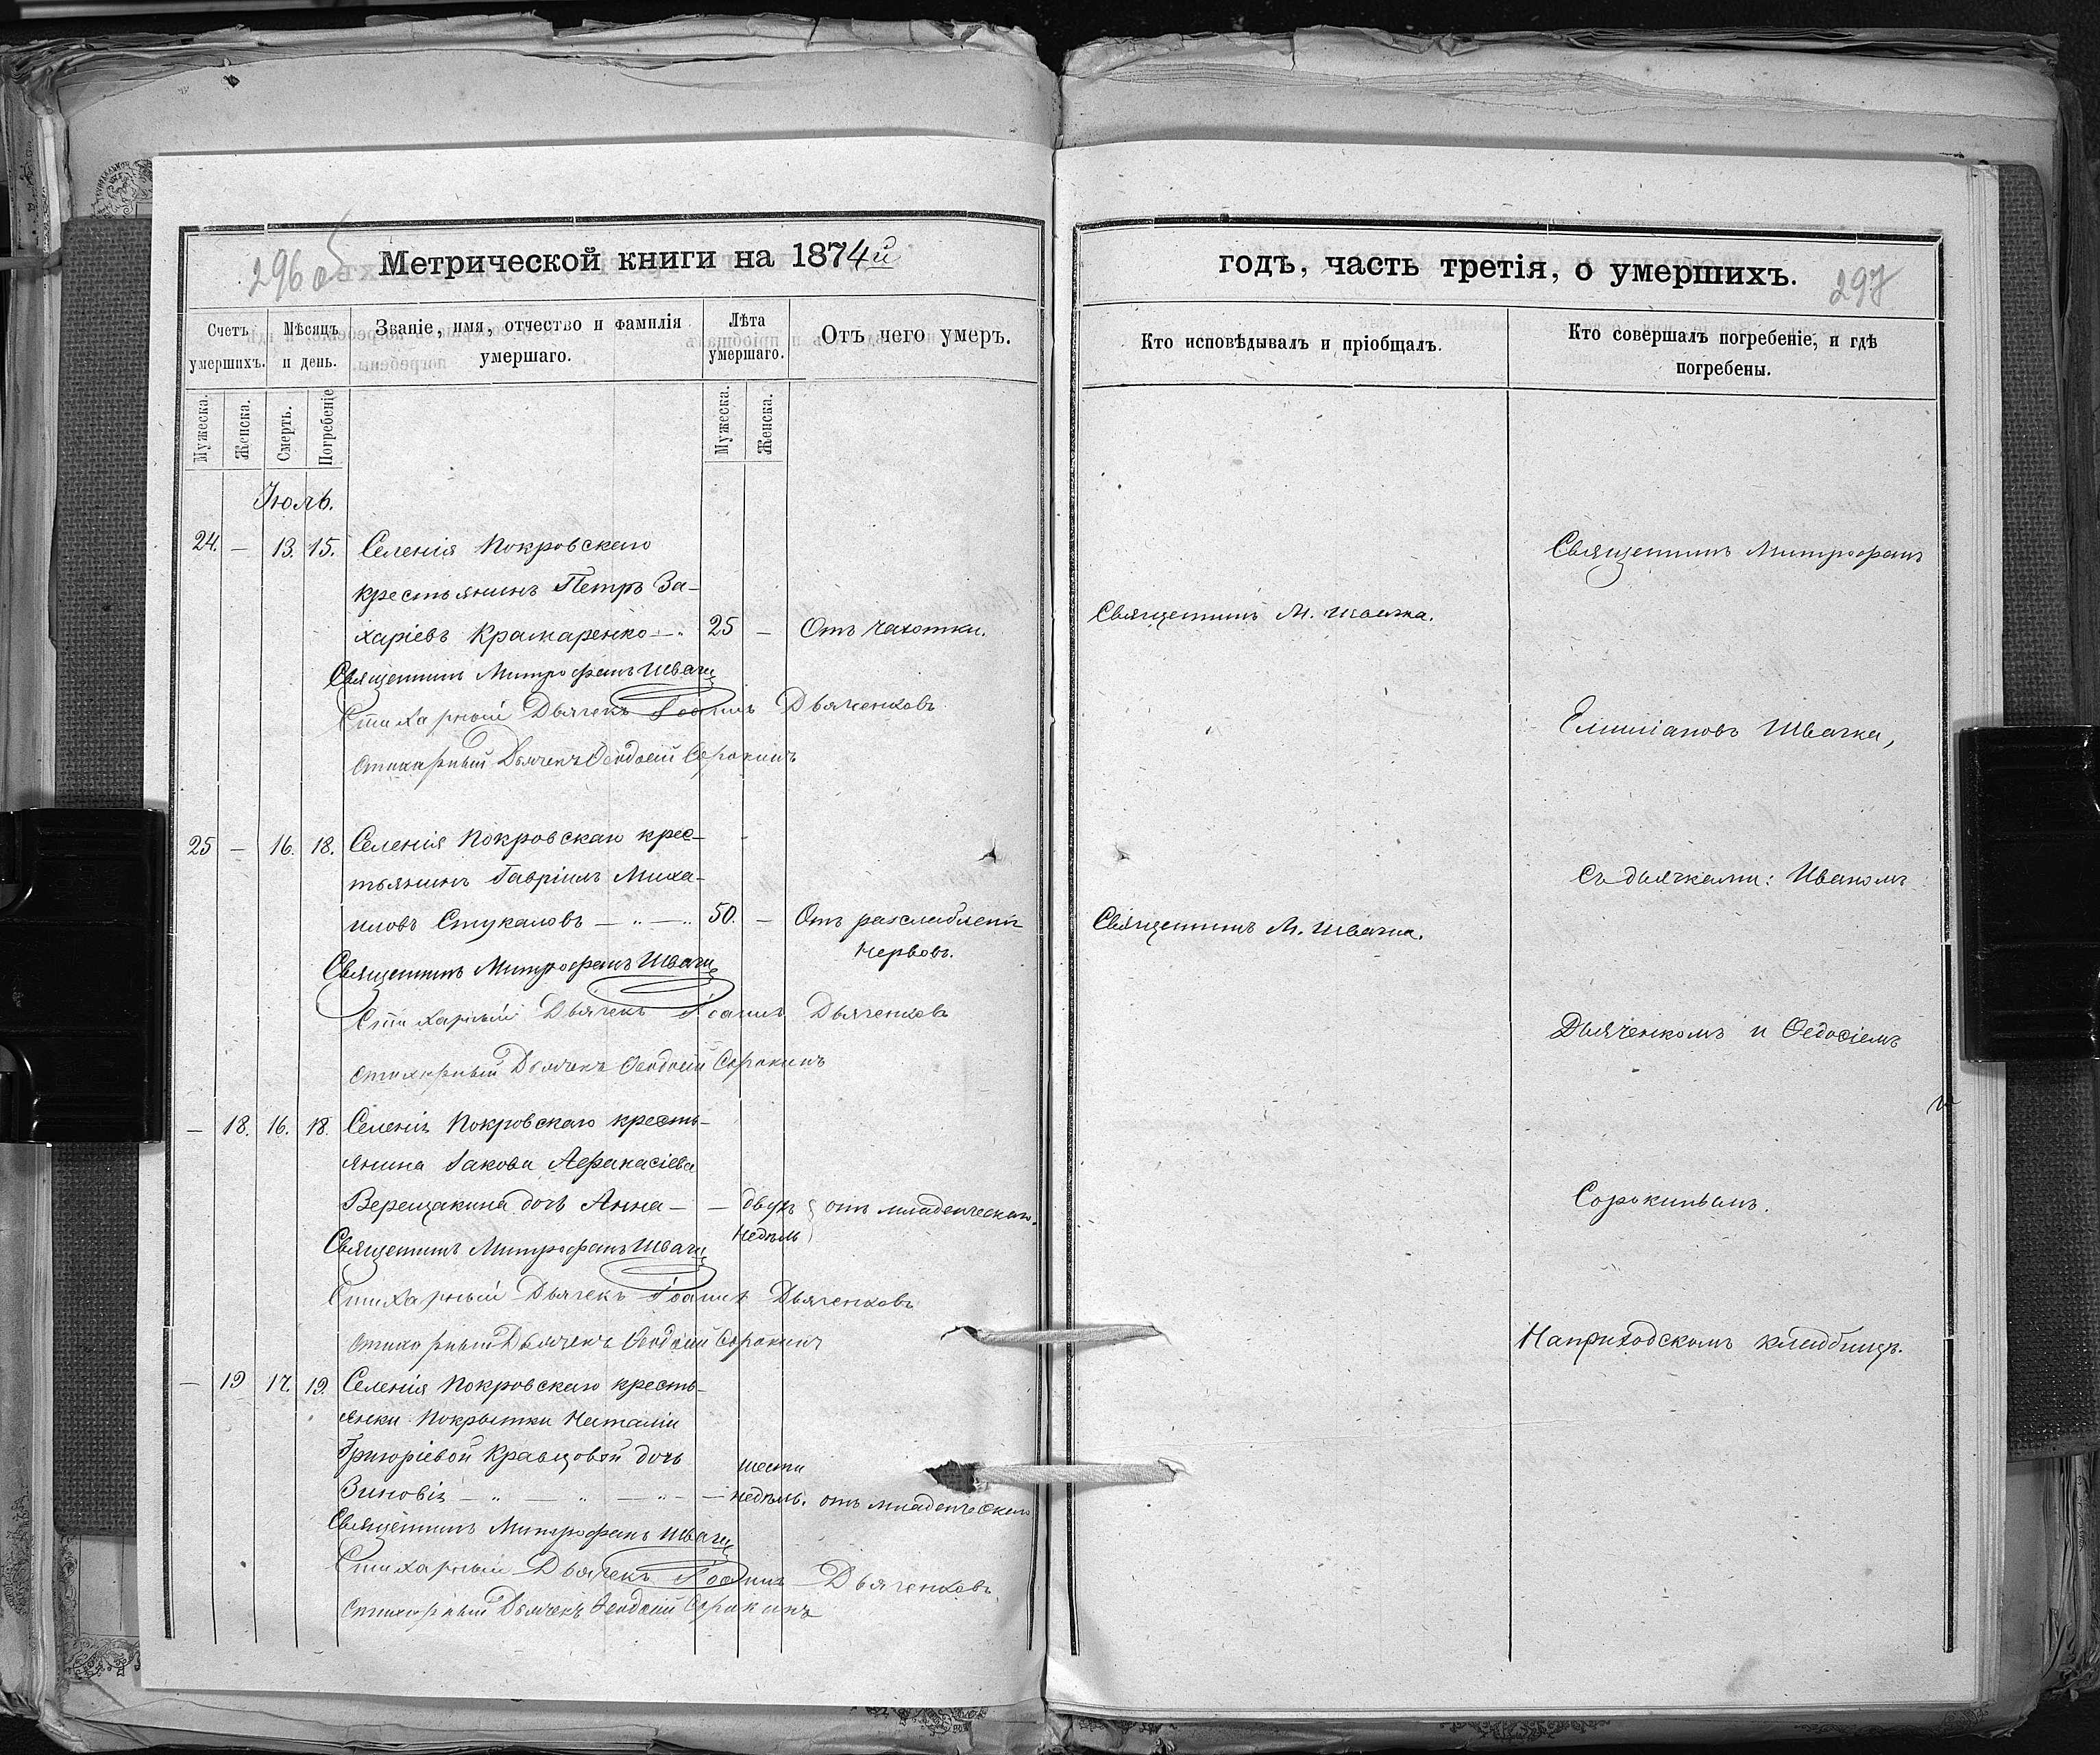 296 об
Метрической книги на 1874й
Счетъ умершихъ.
Мѣсяцъ и день.
Званіе, имя, отчество и фамилія умершаго.
Лѣта умершаго.
Отъ чего умеръ.
Мужеска.
Женска.
Смерть.
Погребеніе
Мужеска.
Женска.
Іюль.
24. — 13. 15. Селенія Покровскаго
крестьянинъ Петръ За-
харіевъ Крамаренко — 25 — Отъ чахотки.
Священникъ Митрофанъ Швачка
Стихарный Дьячекъ Іоаннъ Дьяченковъ
Стихарный Дьячекъ Ѳеодосій Сорокинъ
25 — 16. 18. Селенія Покровскаго крес-
тьянинъ Гавріилъ Миха-
иловъ Стукаловъ — 50. — Отъ разслабленія
нервовъ.
Священникъ Митрофанъ Швачка
Стихарный Дьячекъ Іоаннъ Дьяченковъ
Стихарный Дьячекъ Ѳеодосій Сорокинъ
— 18. 16. 18. Селенія Покровскаго кресть-
янина Іакова Афанасіева
Верещакина дочь Анна — — двухъ отъ младенческаго.
недѣль
Священникъ Митрофанъ Швачка
Стихарный Дьячекъ Іоаннъ Дьяченковъ
Стихарный Дьячекъ Ѳеодосій Сорокинъ
— 19 17. 19. Селенія Покровскаго кресть-
янки Покрытки Наталіи
Григоріевой Кравцовой дочь шести
Зиновія — — недѣль. отъ младенческаго
Священникъ Митрофанъ Швачка
Стихарный Дьячекъ Іоаннъ Дьяченковъ
Стихарный Дьячекъ Ѳеодосій Сорокинъ
годъ, часть третія, о умершихъ.
297
Кто исповѣдывалъ и пріобщалъ.
Кто совершалъ погребеніе, и гдѣ погребены.
Священникъ М. Швачка.
Священникъ М. Швачка.
Священникъ Митрофанъ
Емиліановъ Швачка,
съ дьячками: Иваномъ
Дьяченкомъ и Ѳедосіемъ
Сорокинымъ.
На приходскомъ кладбищѣ.